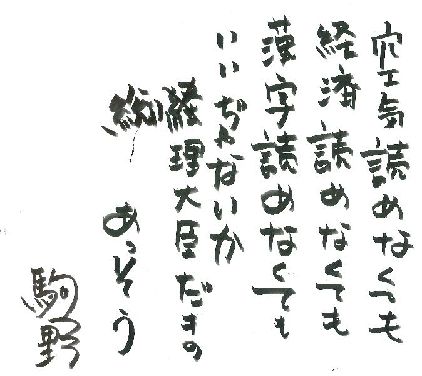 空気読めなくても
経済読めなくても
漢字読めなくても
いいぢゃないか
経理大臣だもの
あっそう
駒野